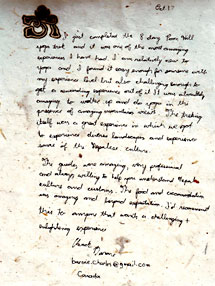 Oct 17
I just completed the 8 day Poon Hill
yoga trek and it was one of the most amazing
experiences I have had. I am relatively new to
yoga and I found it easy enough for someone with
my experience level but also challenging enough to
get a rewarding experience out of it. I was absolutely
amazing to wake up and do yoga in the
presence of amazing mountains. The trekking
itself was a great experience in which we got
to experience diverse landscapes and experience
some of the Nepalese culture.
The guides were amazing, very professional
and always willing to help you understand Nepali
culture and customs. The food and accomodation
was amazing and beyond expectation. I'd recommend
this to anyone that wants a challenging +
enlightening experience
Canada